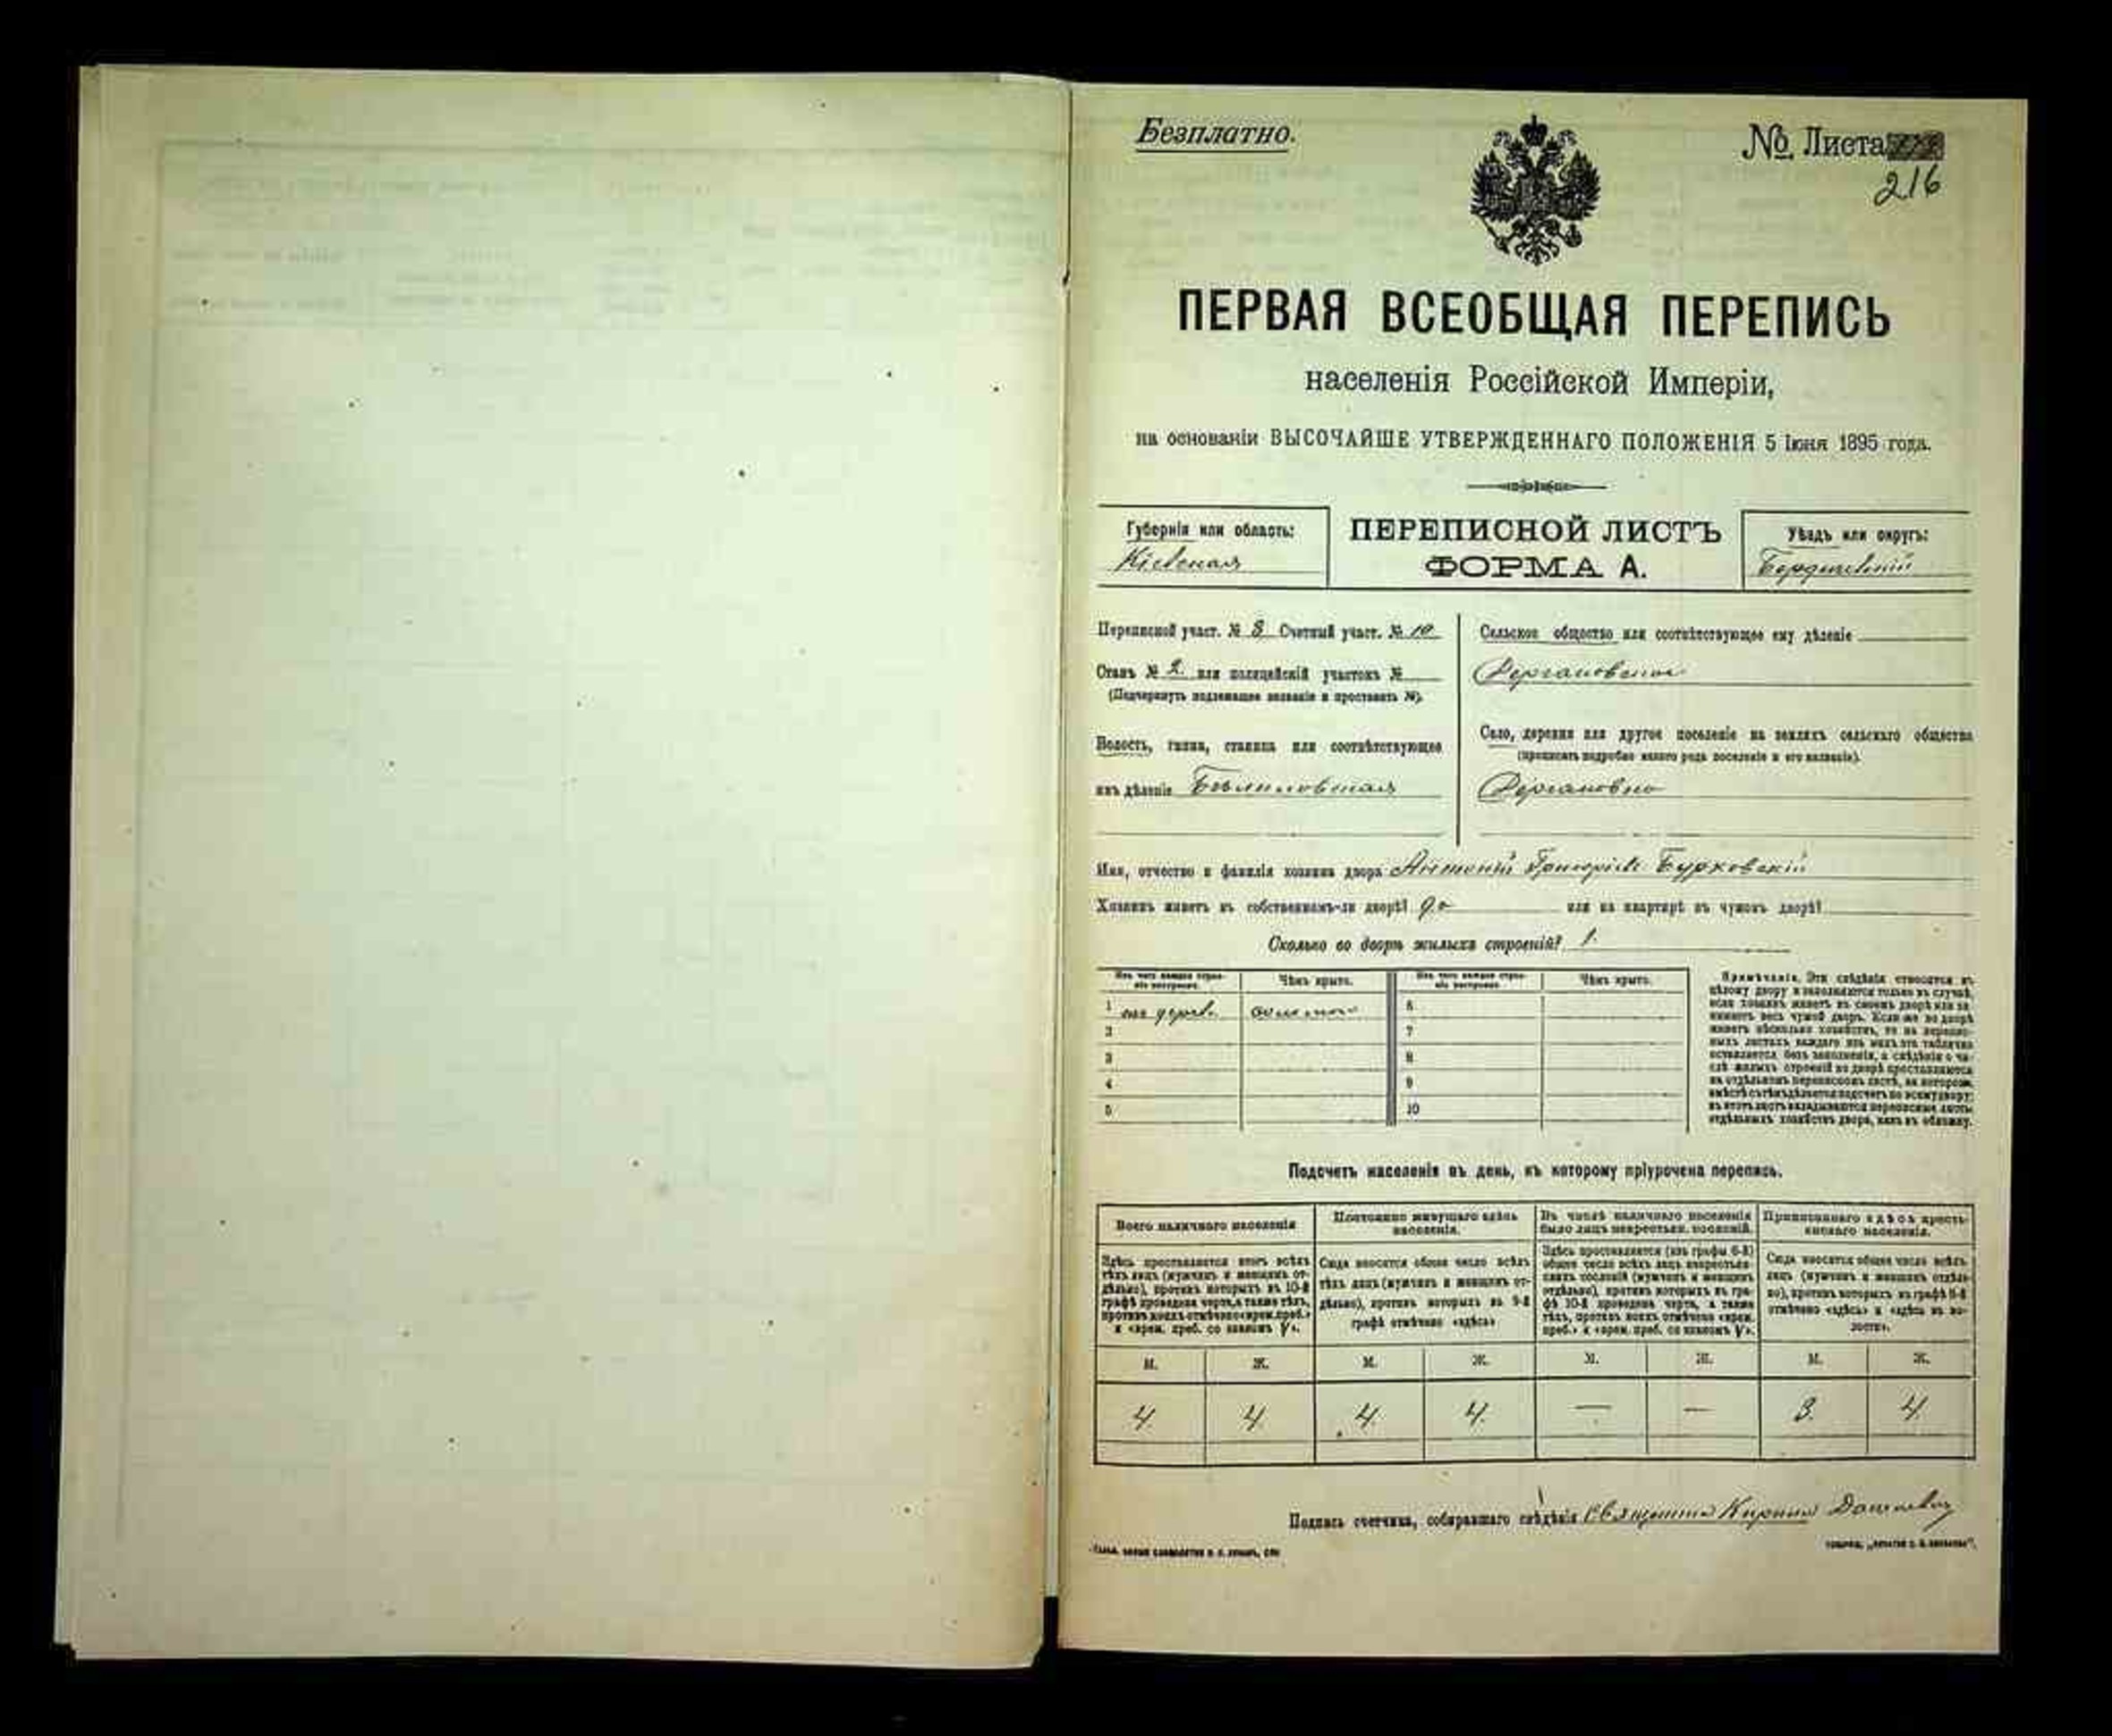 Безплатно.
№ Листа
216
ПЕРВАЯ ВСЕОБЩАЯ ПЕРЕПИСЬ
населенія Россійской Имперіи,
на основаніи ВЫСОЧАЙШЕ УТВЕРЖДЕННАГО ПОЛОЖЕНІЯ 5 Іюня 1895 года.
Губернія или область:
Кіевская
ПЕРЕПИСНОЙ ЛИСТЪ
ФОРМА А.
Уѣздъ или округъ:
Бердичевскій
Переписной участ. № 3 Счетный участ. № 10
Станъ № 2 или полицейскій участокъ №
(Подчеркнуть подлежащее названіе и проставить №).
Волость, гмина, станица или соотвѣтствующее
имъ дѣленіе Бѣлиловская
Сельское общество или соотвѣтствующее ему дѣленіе
Село, деревня или другое поселеніе на земляхъ сельскаго общества
(прописать подробно какого рода поселеніе и его названіе).
Имя, отчество и фамилія хозяина двора Антоній Григоріев Бурховскій
Хозяинъ живетъ въ собственномъ-ли дворѣ? да или на квартирѣ въ чужомъ дворѣ?
Сколько во дворѣ жилыхъ строеній? 1.
Изъ чего каждое строе-
ніе построено.
Чѣмъ крыто.
Изъ чего каждое строе-
ніе построено.
Чѣмъ крыто.
1 изъ дерев. соломою 6
2 7
3 8
4 9
5 10
Примѣчаніе. Эти свѣдѣнія относятся къ
цѣлому двору и заполняются только въ случаѣ,
если хозяинъ живетъ въ своемъ дворѣ или за-
нимаетъ весь чужой дворъ. Если же во дворѣ
живетъ нѣсколько хозяйствъ, то на перепис-
ныхъ листахъ каждаго изъ нихъ эта табличка
оставляется безъ заполненія, а свѣдѣнія о чи-
слѣ жилыхъ строеній во дворѣ проставляются
на отдѣльномъ переписномъ листѣ, на которомъ,
вмѣстѣ съ тѣмъ дѣлается подсчетъ по всему двору;
въ этотъ листъ вкладываются переписные листы
отдѣльныхъ хозяйствъ двора, какъ въ обложку.
Подсчетъ населенія въ день, къ которому пріурочена перепись.
Всего наличнаго населенія
Постоянно живущаго здѣсь
населенія.
Въ числѣ наличнаго населенія
было лицъ некрестьян. сословій.
Приписаннаго здѣсь кресть-
янскаго населенія.
Здѣсь проставляется итогъ всѣхъ
тѣхъ лицъ (мужчинъ и женщинъ от-
дѣльно), противъ которыхъ въ 10-й
графѣ проведена черта, а также тѣхъ,
противъ коихъ отмѣчено «врем. преб.»
и «врем. преб. со знакомъ V».
Сюда вносится общее число всѣхъ
тѣхъ лицъ (мужчинъ и женщинъ от-
дѣльно), противъ которыхъ въ 9-й
графѣ отмѣчено «здѣсь»
Здѣсь проставляется (изъ графы 6-й)
общее число всѣхъ лицъ некрестьян-
скихъ сословій (мужчинъ и женщинъ
отдѣльно), противъ которыхъ въ гра-
фѣ 10-й проведена черта, а также
тѣхъ, противъ коихъ отмѣчено «врем.
преб.» и «врем. преб. со знакомъ V».
Сюда вносится общее число всѣхъ
лицъ (мужчинъ и женщинъ отдѣль-
но), противъ которыхъ въ графѣ 8-й
отмѣчено «здѣсь» и «здѣсь въ во-
лости».
М. Ж. М. Ж. М. Ж. М. Ж.
4 4 4. 4. — — 3. 4.
Подпись счетчика, собиравшаго свѣдѣнія Священникъ Кирилл